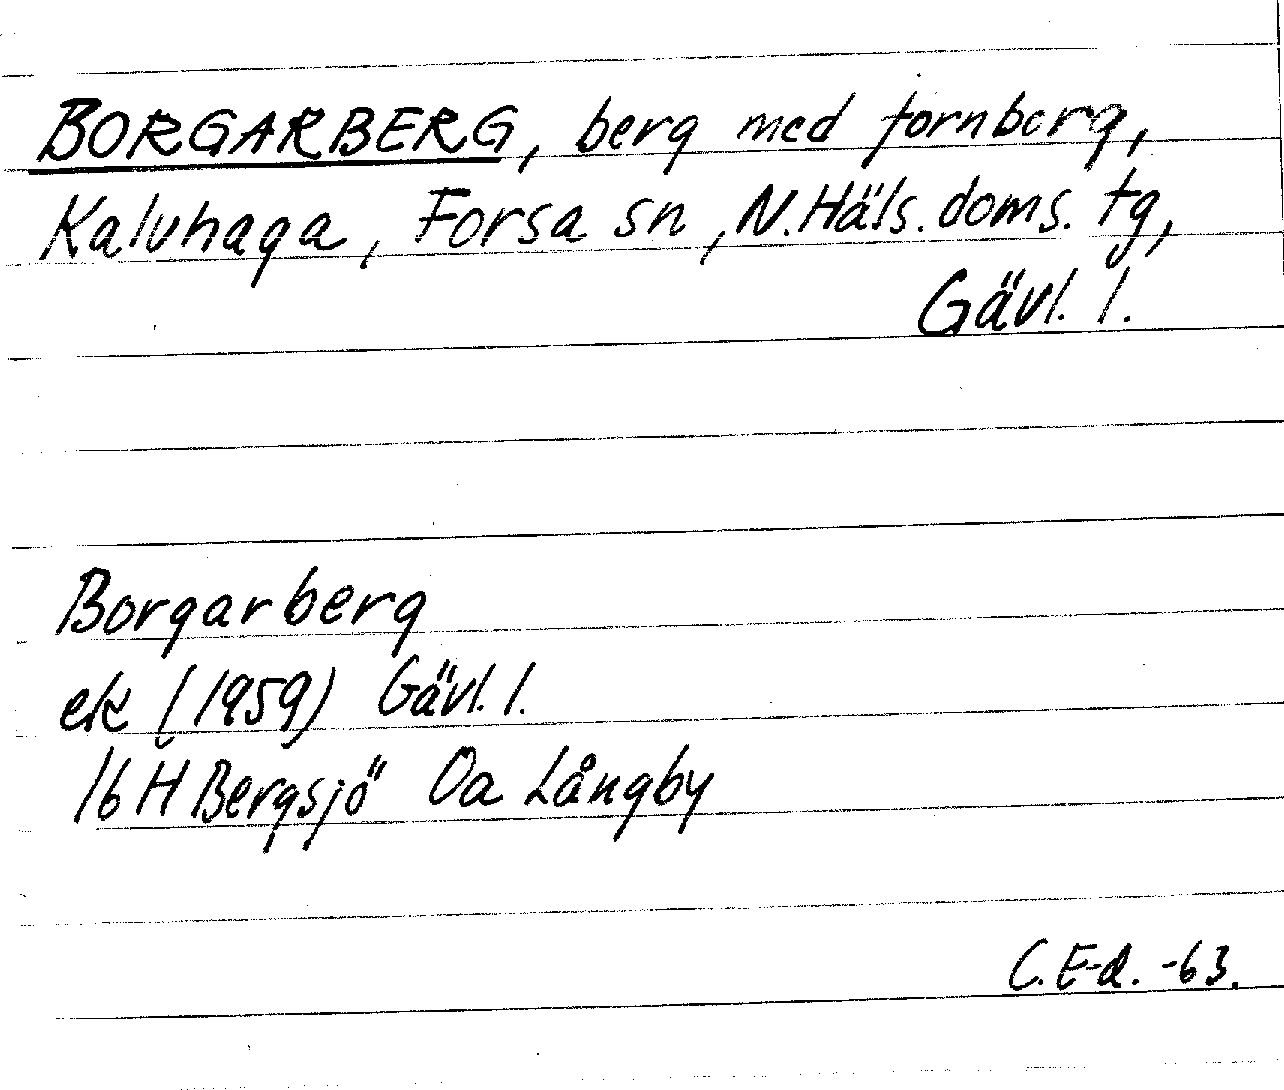 BORGARBERG, berg med fornborg,
Kaluhaga, Forsa sn, N. Häls. doms. tg,
Gävl. l.
Borgarberg
ek (1959) Gävl. l.
16 H Bergsjö Oa Långby
C. E-d. -63.